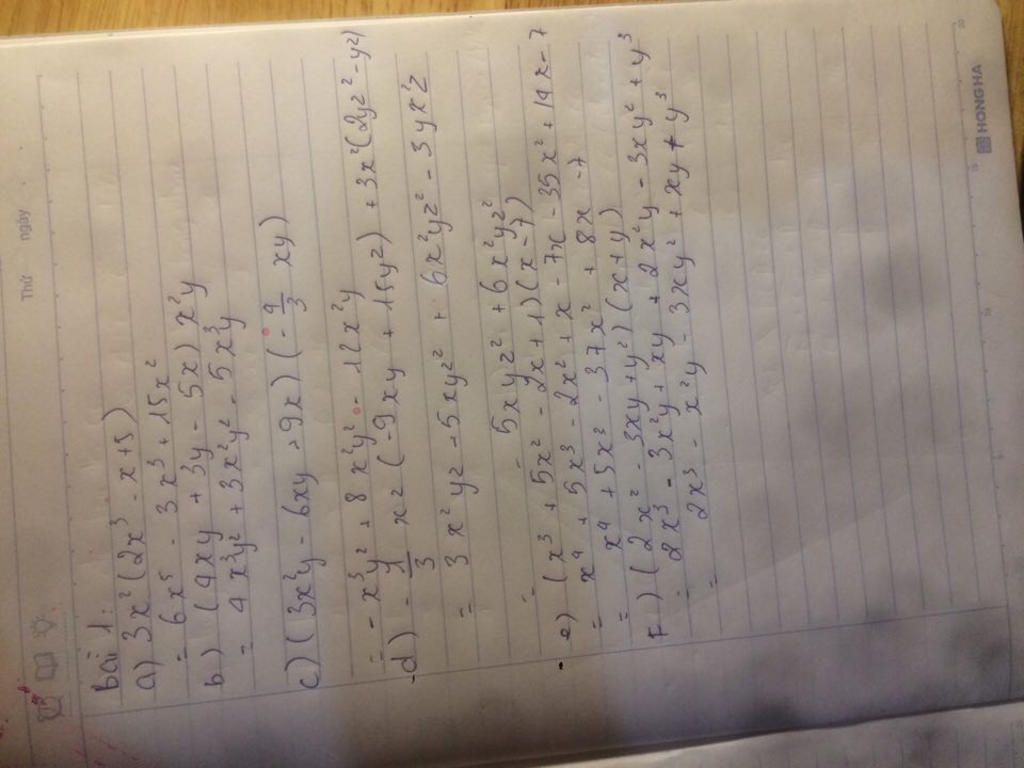 Thứ ngày
bài 1:
a) 3x²(2x³ - x + 5)
= 6x⁵ - 3x³ + 15x²
b) (4xy + 3y - 5x) x²y
= 4x³y² + 3x²y² - 5x³y
c) (3x²y - 6xy + 9x) (- 4/3 xy)
= - x³y² + 8x²y² - 12x²y
d) - 1/3 xz (-9xy + 15y²) + 3x²(2yz² - y²)
= 3x²yz - 5xyz² + 6x²yz² - 3yx²z
= 5xyz² + 6x²yz²
e) (x³ + 5x² - 2x + 1)(x - 7)
= x⁴ + 5x³ - 2x² + x - 7x - 35x² + 14x - 7
= x⁴ + 5x² - 37x² + 8x - 7
F) (2x² - 3xy + y²)(x + y)
= 2x³ - 3x²y + xy + 2x²y - 3xy² + y³
= 2x³ - x²y - 3xy² + xy + y³
HONG HA